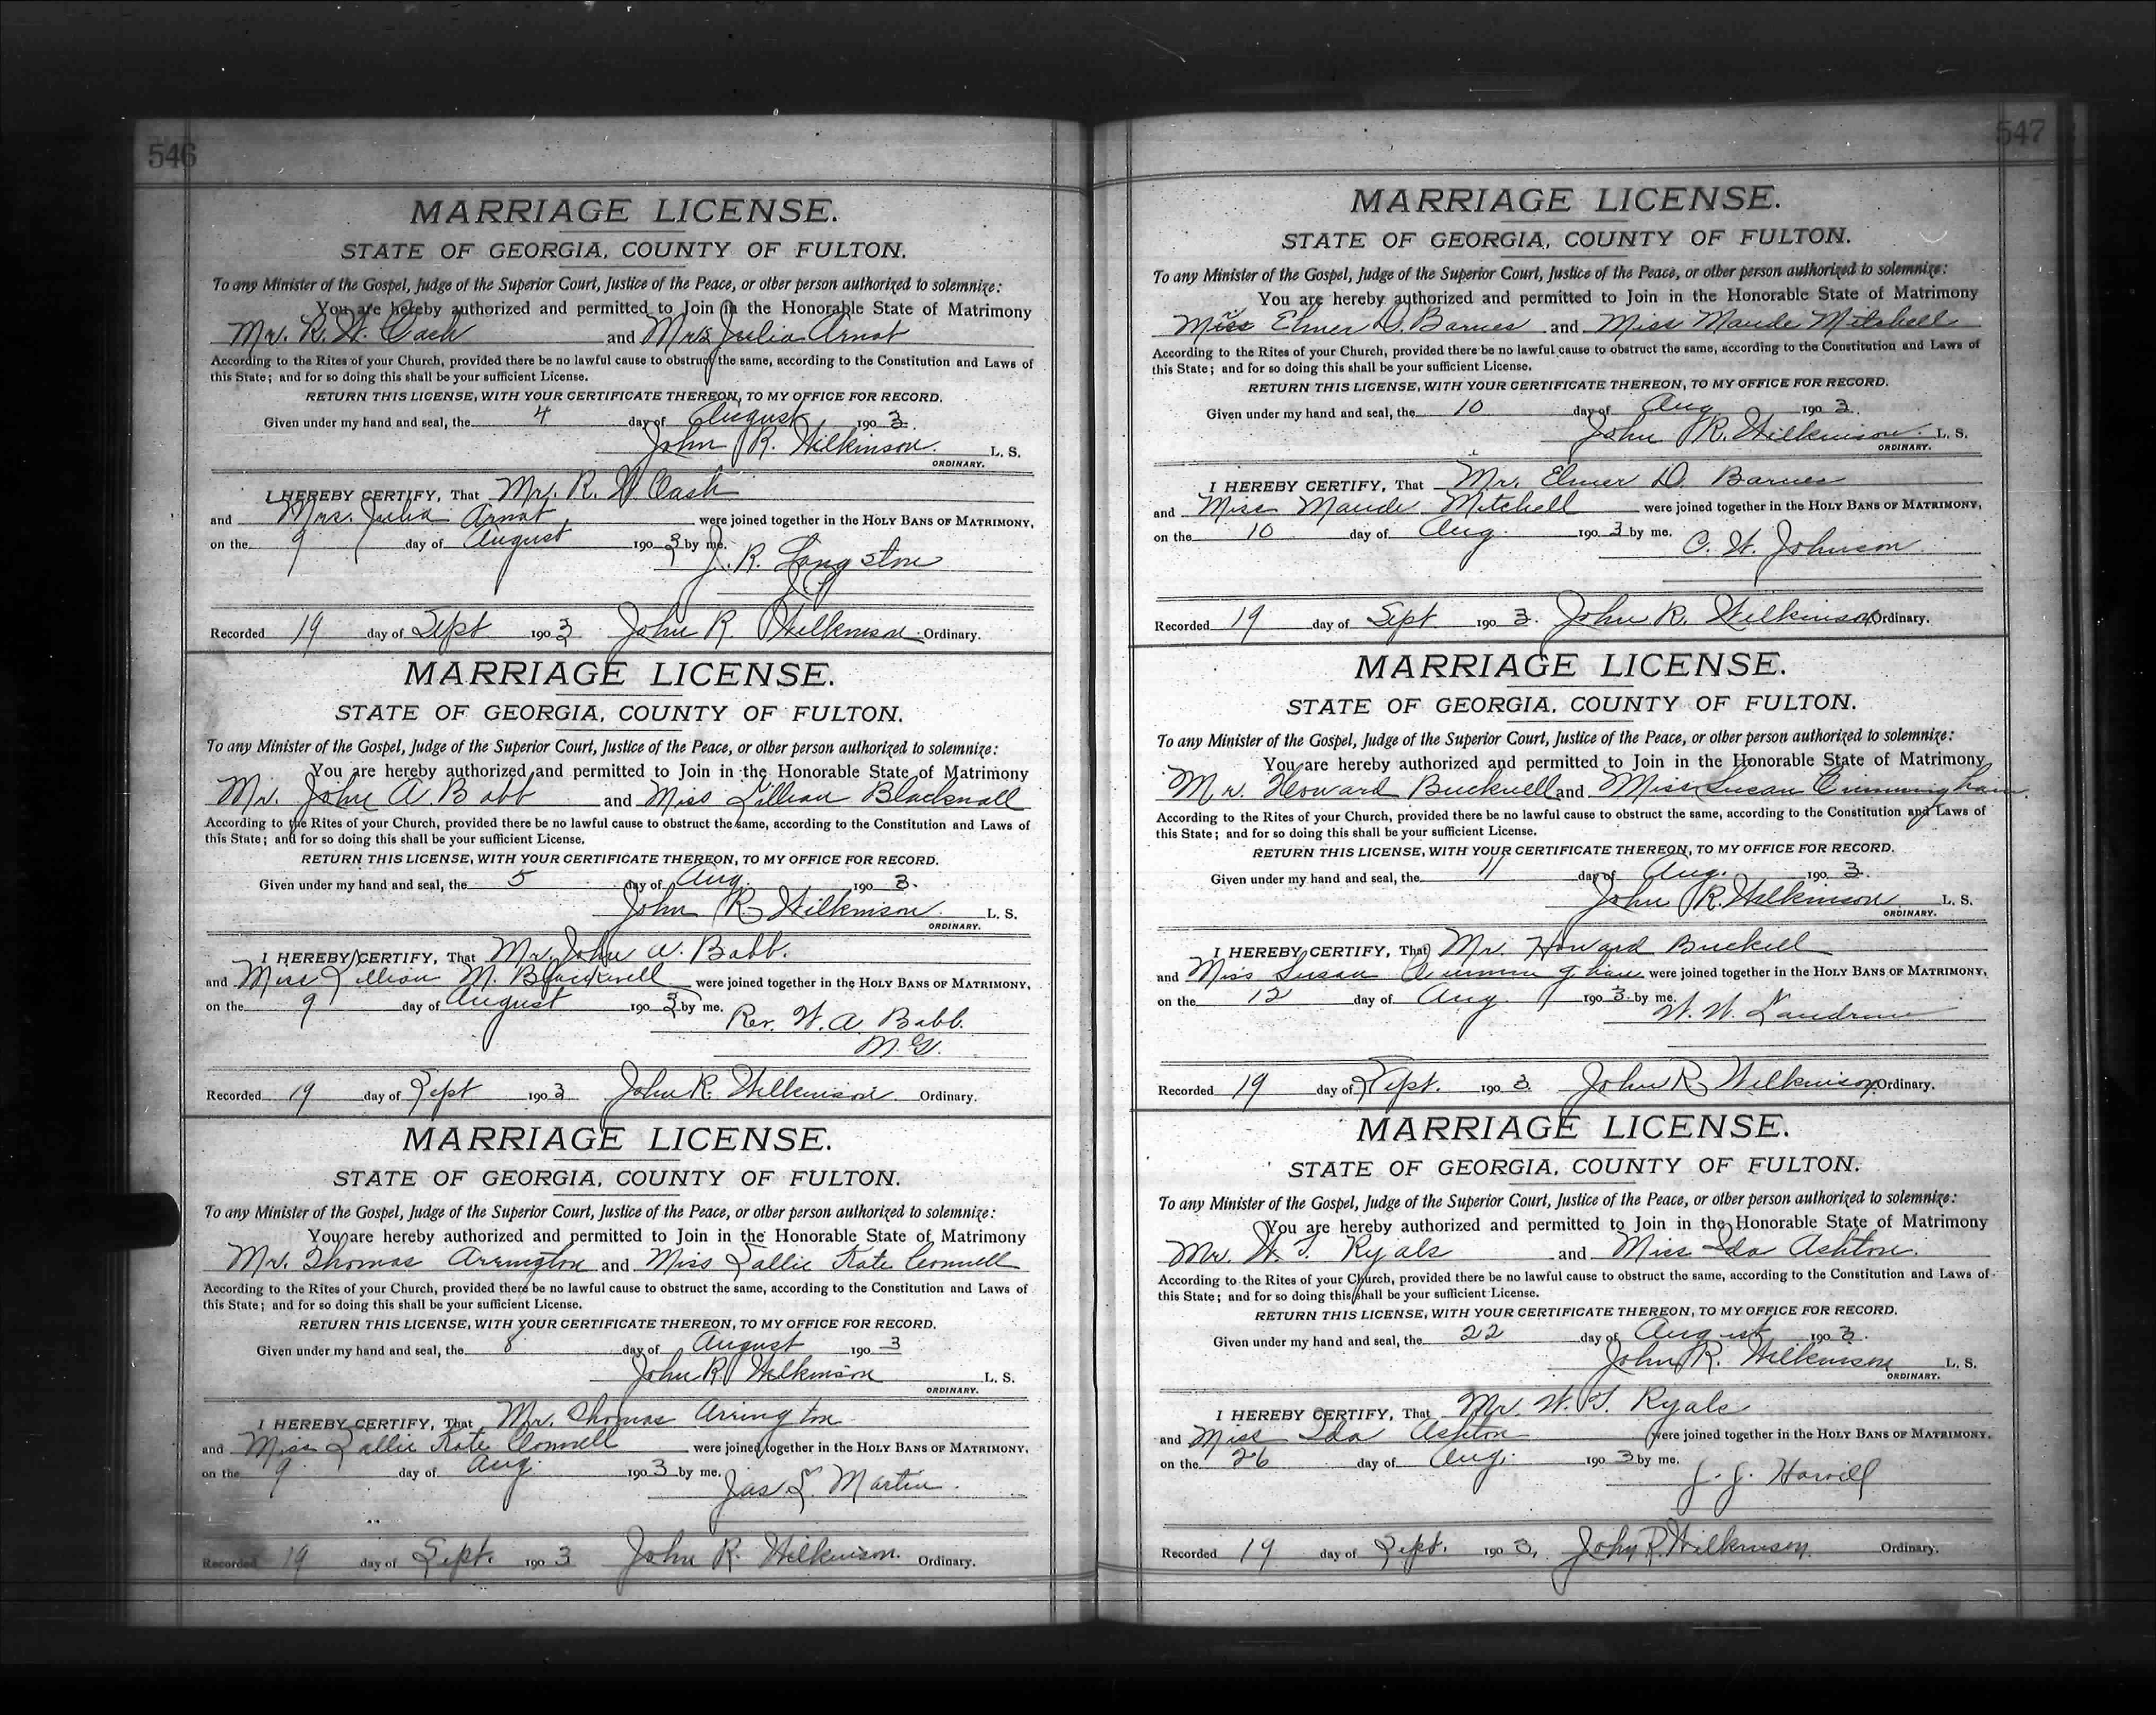 546
MARRIAGE LICENSE.
STATE OF GEORGIA, COUNTY OF FULTON.
To any Minister of the Gospel, Judge of the Superior Court, Justice of the Peace, or other person authorized to solemnize:
You are hereby authorized and permitted to Join in the Honorable State of Matrimony
Mr. R. W. Cash and Mrs. Julia Arnat
According to the Rites of your Church, provided there be no lawful cause to obstruct the same, according to the Constitution and Laws of
this State; and for so doing this shall be your sufficient License.
RETURN THIS LICENSE, WITH YOUR CERTIFICATE THEREON, TO MY OFFICE FOR RECORD.
Given under my hand and seal, the 4 day of August 1903.
John R. Wilkinson. L. S.
ORDINARY.
I HEREBY CERTIFY, That Mr. R. W. Cash
and Mrs. Julia Arnat were joined together in the HOLY BANS OF MATRIMONY,
on the 9 day of August 1903 by me.
J. R. Langston
J P
Recorded 19 day of Sept 1903 John R. Wilkinson Ordinary.
MARRIAGE LICENSE.
STATE OF GEORGIA, COUNTY OF FULTON.
To any Minister of the Gospel, Judge of the Superior Court, Justice of the Peace, or other person authorized to solemnize:
You are hereby authorized and permitted to Join in the Honorable State of Matrimony
Mr. John A. Babb and Miss Lillian Blacknall
According to the Rites of your Church, provided there be no lawful cause to obstruct the same, according to the Constitution and Laws of
this State; and for so doing this shall be your sufficient License.
RETURN THIS LICENSE, WITH YOUR CERTIFICATE THEREON, TO MY OFFICE FOR RECORD.
Given under my hand and seal, the 5 day of Aug. 1903.
John R. Wilkinson. L. S.
ORDINARY.
I HEREBY CERTIFY, That Mr. John W. Babb.
and Miss Lillian M. Blackwell were joined together in the HOLY BANS OF MATRIMONY,
on the 9 day of August 1903 by me.
Rev. W. A. Babb.
M. G.
Recorded 19 day of Sept 1903 John R. Wilkinson. Ordinary.
MARRIAGE LICENSE.
STATE OF GEORGIA, COUNTY OF FULTON.
To any Minister of the Gospel, Judge of the Superior Court, Justice of the Peace, or other person authorized to solemnize:
You are hereby authorized and permitted to Join in the Honorable State of Matrimony
Mr. Thomas Arrington and Miss Sallie Kate Connell
According to the Rites of your Church, provided there be no lawful cause to obstruct the same, according to the Constitution and Laws of
this State; and for so doing this shall be your sufficient License.
RETURN THIS LICENSE, WITH YOUR CERTIFICATE THEREON, TO MY OFFICE FOR RECORD.
Given under my hand and seal, the 8 day of August 1903
John R. Wilkinson L. S.
ORDINARY.
I HEREBY CERTIFY, That Mr. Thomas Arrington
and Miss Sallie Kate Connell were joined together in the HOLY BANS OF MATRIMONY,
on the 9 day of Aug. 1903 by me.
Jas S. Martin.
Recorded 19 day of Sept. 1903 John R. Wilkinson. Ordinary.
547
MARRIAGE LICENSE.
STATE OF GEORGIA, COUNTY OF FULTON.
To any Minister of the Gospel, Judge of the Superior Court, Justice of the Peace, or other person authorized to solemnize:
You are hereby authorized and permitted to Join in the Honorable State of Matrimony
Elmer D. Barnes and Miss Maude Mitchell
According to the Rites of your Church, provided there be no lawful cause to obstruct the same, according to the Constitution and Laws of
this State; and for so doing this shall be your sufficient License.
RETURN THIS LICENSE, WITH YOUR CERTIFICATE THEREON, TO MY OFFICE FOR RECORD.
Given under my hand and seal, the 10 day of Aug 1903.
John R. Wilkinson. L. S.
ORDINARY.
I HEREBY CERTIFY, That Mr. Elmer D. Barnes
and Miss Maude Mitchell were joined together in the HOLY BANS OF MATRIMONY,
on the 10 day of Aug. 1903 by me.
C. W. Johnson
Recorded 19 day of Sept. 1903. John R. Wilkinson Ordinary.
MARRIAGE LICENSE.
STATE OF GEORGIA, COUNTY OF FULTON.
To any Minister of the Gospel, Judge of the Superior Court, Justice of the Peace, or other person authorized to solemnize:
You are hereby authorized and permitted to Join in the Honorable State of Matrimony
Mr. Howard Bucknell and Miss Susan Cunningham.
According to the Rites of your Church, provided there be no lawful cause to obstruct the same, according to the Constitution and Laws of
this State; and for so doing this shall be your sufficient License.
RETURN THIS LICENSE, WITH YOUR CERTIFICATE THEREON, TO MY OFFICE FOR RECORD.
Given under my hand and seal, the 11 day of Aug. 1903.
John R. Wilkinson L. S.
ORDINARY.
I HEREBY CERTIFY, That Mr. Howard Buckell
and Miss Susan Cunningham were joined together in the HOLY BANS OF MATRIMONY,
on the 12 day of Aug 1903. by me.
W. W. Landrum
Recorded 19 day of Sept. 1903. John R. Wilkinson Ordinary.
MARRIAGE LICENSE.
STATE OF GEORGIA, COUNTY OF FULTON.
To any Minister of the Gospel, Judge of the Superior Court, Justice of the Peace, or other person authorized to solemnize:
You are hereby authorized and permitted to Join in the Honorable State of Matrimony
Mr. W. T. Ryals and Miss Ida Ashton.
According to the Rites of your Church, provided there be no lawful cause to obstruct the same, according to the Constitution and Laws of
this State; and for so doing this shall be your sufficient License.
RETURN THIS LICENSE, WITH YOUR CERTIFICATE THEREON, TO MY OFFICE FOR RECORD.
Given under my hand and seal, the 22 day of August 1903.
John R. Wilkinson L. S.
ORDINARY.
I HEREBY CERTIFY, That Mr. W. T. Ryals
and Miss Ida Ashton were joined together in the HOLY BANS OF MATRIMONY,
on the 26 day of Aug. 1903 by me.
J. J. Harvill
Recorded 19 day of Sept. 1903, John R. Wilkinson. Ordinary.